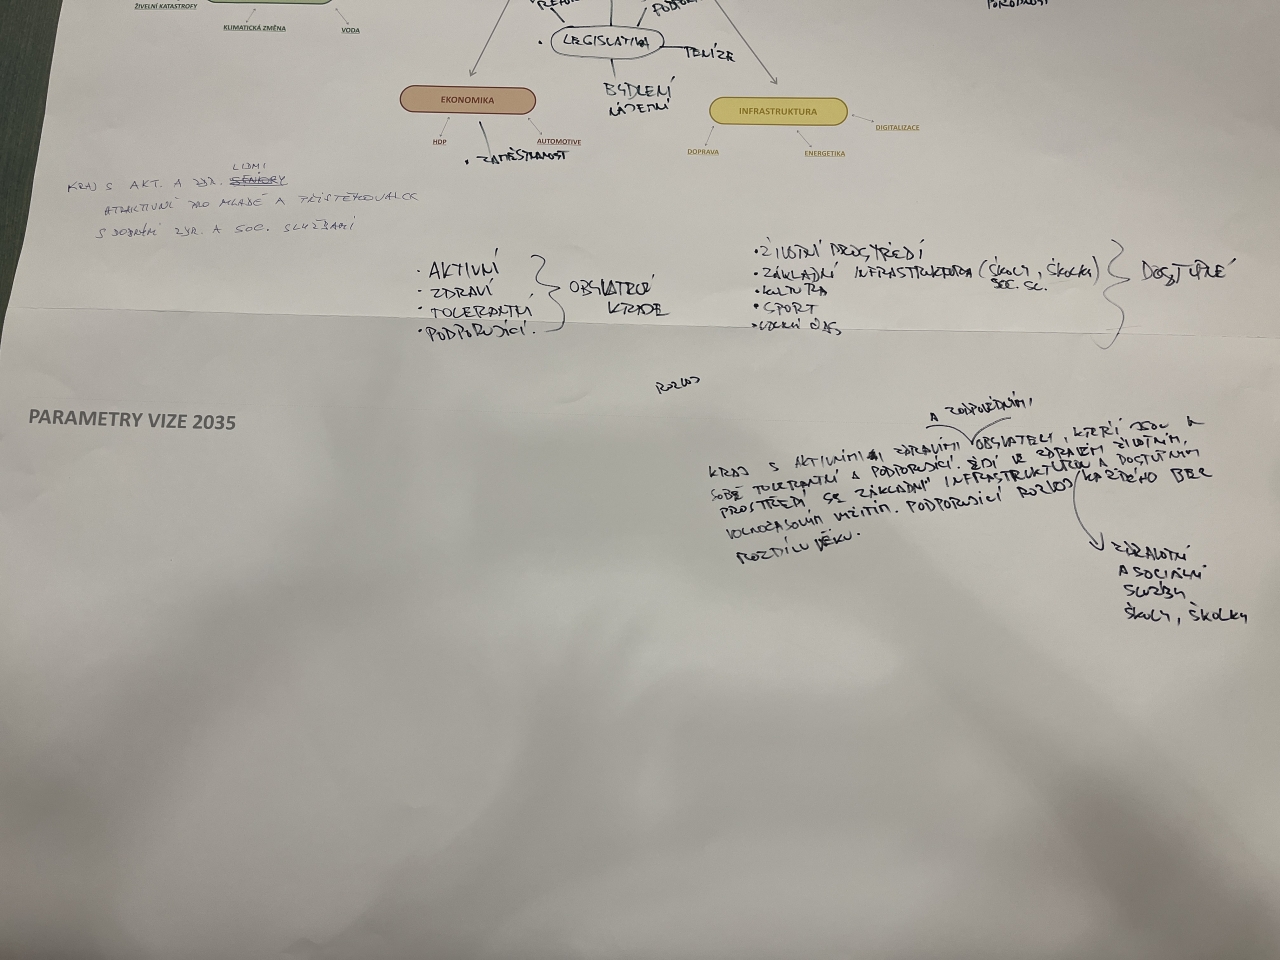 ŽIVELNÍ KATASTROFY
KLIMATICKÁ ZMĚNA
VODA
LEGISLATIVA
PENÍZE
BYDLENÍ
NÁJEMNÍ
EKONOMIKA
HDP
AUTOMOTIVE
• ZAMĚSTNANOST
INFRASTRUKTURA
DOPRAVA
ENERGETIKA
DIGITALIZACE
LIDMI
KRAJ S AKT. A ZDR. SENIORY
ATRAKTIVNÍ PRO MLADÉ A PŘISTĚHOVALCE
S DOBRÝMI ZDR. A SOC. SLUŽBAMI
• AKTIVNÍ
• ZDRAVÍ
• TOLERANTNÍ
• PODPORUJÍCÍ.
OBYVATELÉ
KRAJE
• ŽIVOTNÍ PROSTŘEDÍ
• ZÁKLADNÍ INFRASTRUKTURA (ŠKOLY, ŠKOLKA)
SOC. SL.
• KULTURA
• SPORT
• VOLNÝ ČAS
DOSTUPNÉ
ROZVOJ
PARAMETRY VIZE 2035
A ZODPOVĚDNÝMI
KRAJ S AKTIVNÍMI ZDRAVÍMI OBYVATELI, KTEŘÍ JSOU K
SOBĚ TOLERANTNÍ A PODPORUJÍCÍ. ŽIJÍ VE ZDRAVÉM ŽIVOTNÍM
PROSTŘEDÍ, SE ZÁKLADNÍ INFRASTRUKTUROU A DOSTUPNÝM
VOLNOČASOVÝM VYŽITÍM. PODPORUJÍCÍ ROZVOJ KAŽDÉHO BEZ
ROZDÍLU VĚKU.
ZDRAVOTNÍ
A SOCIÁLNÍ
SLUŽBY
ŠKOLY, ŠKOLKY